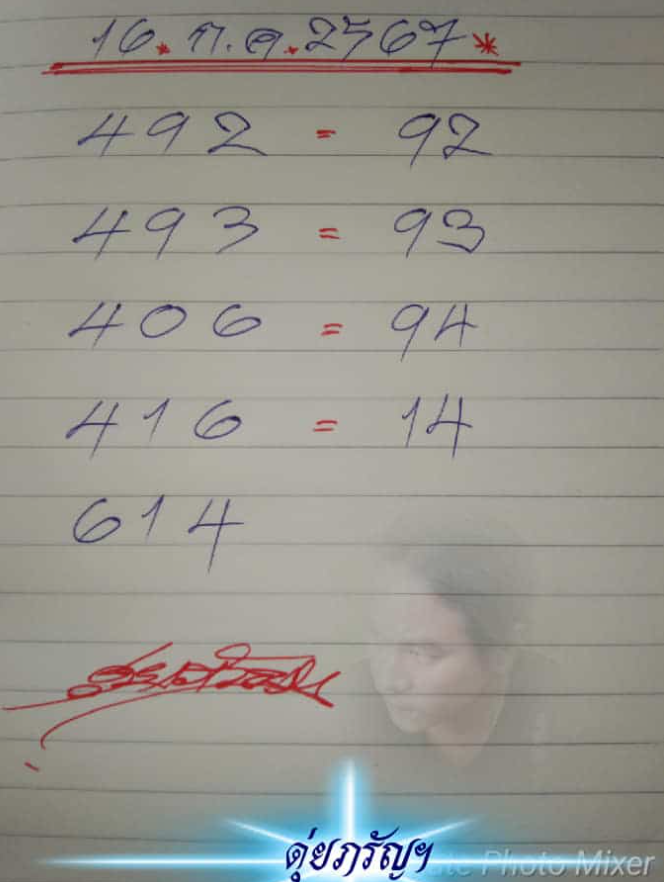 16. ก.ค. 2567 *
492 = 92
493 = 93
406 = 94
416 = 14
614
ดุ่ยภรัญฯ
Photo Mixer